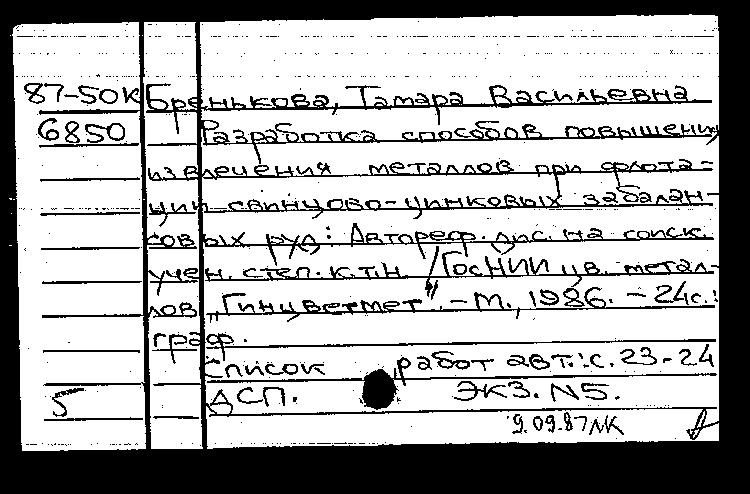 87-50к Бренькова, Тамара Васильевна
6850 Разработка способов повышения
извлечения металлов при флота-
ции свинцово-цинковых забалан-
совых руд: Автореф. дис. на соиск.
учен. степ. к.т.н. / ГосНИИ цв. метал-
лов „Гинцветмет". - М., 1986. - 24с.:
граф.
Список работ авт.: с. 23-24
5 ДСП. ЭКЗ. N5.
9.09.87